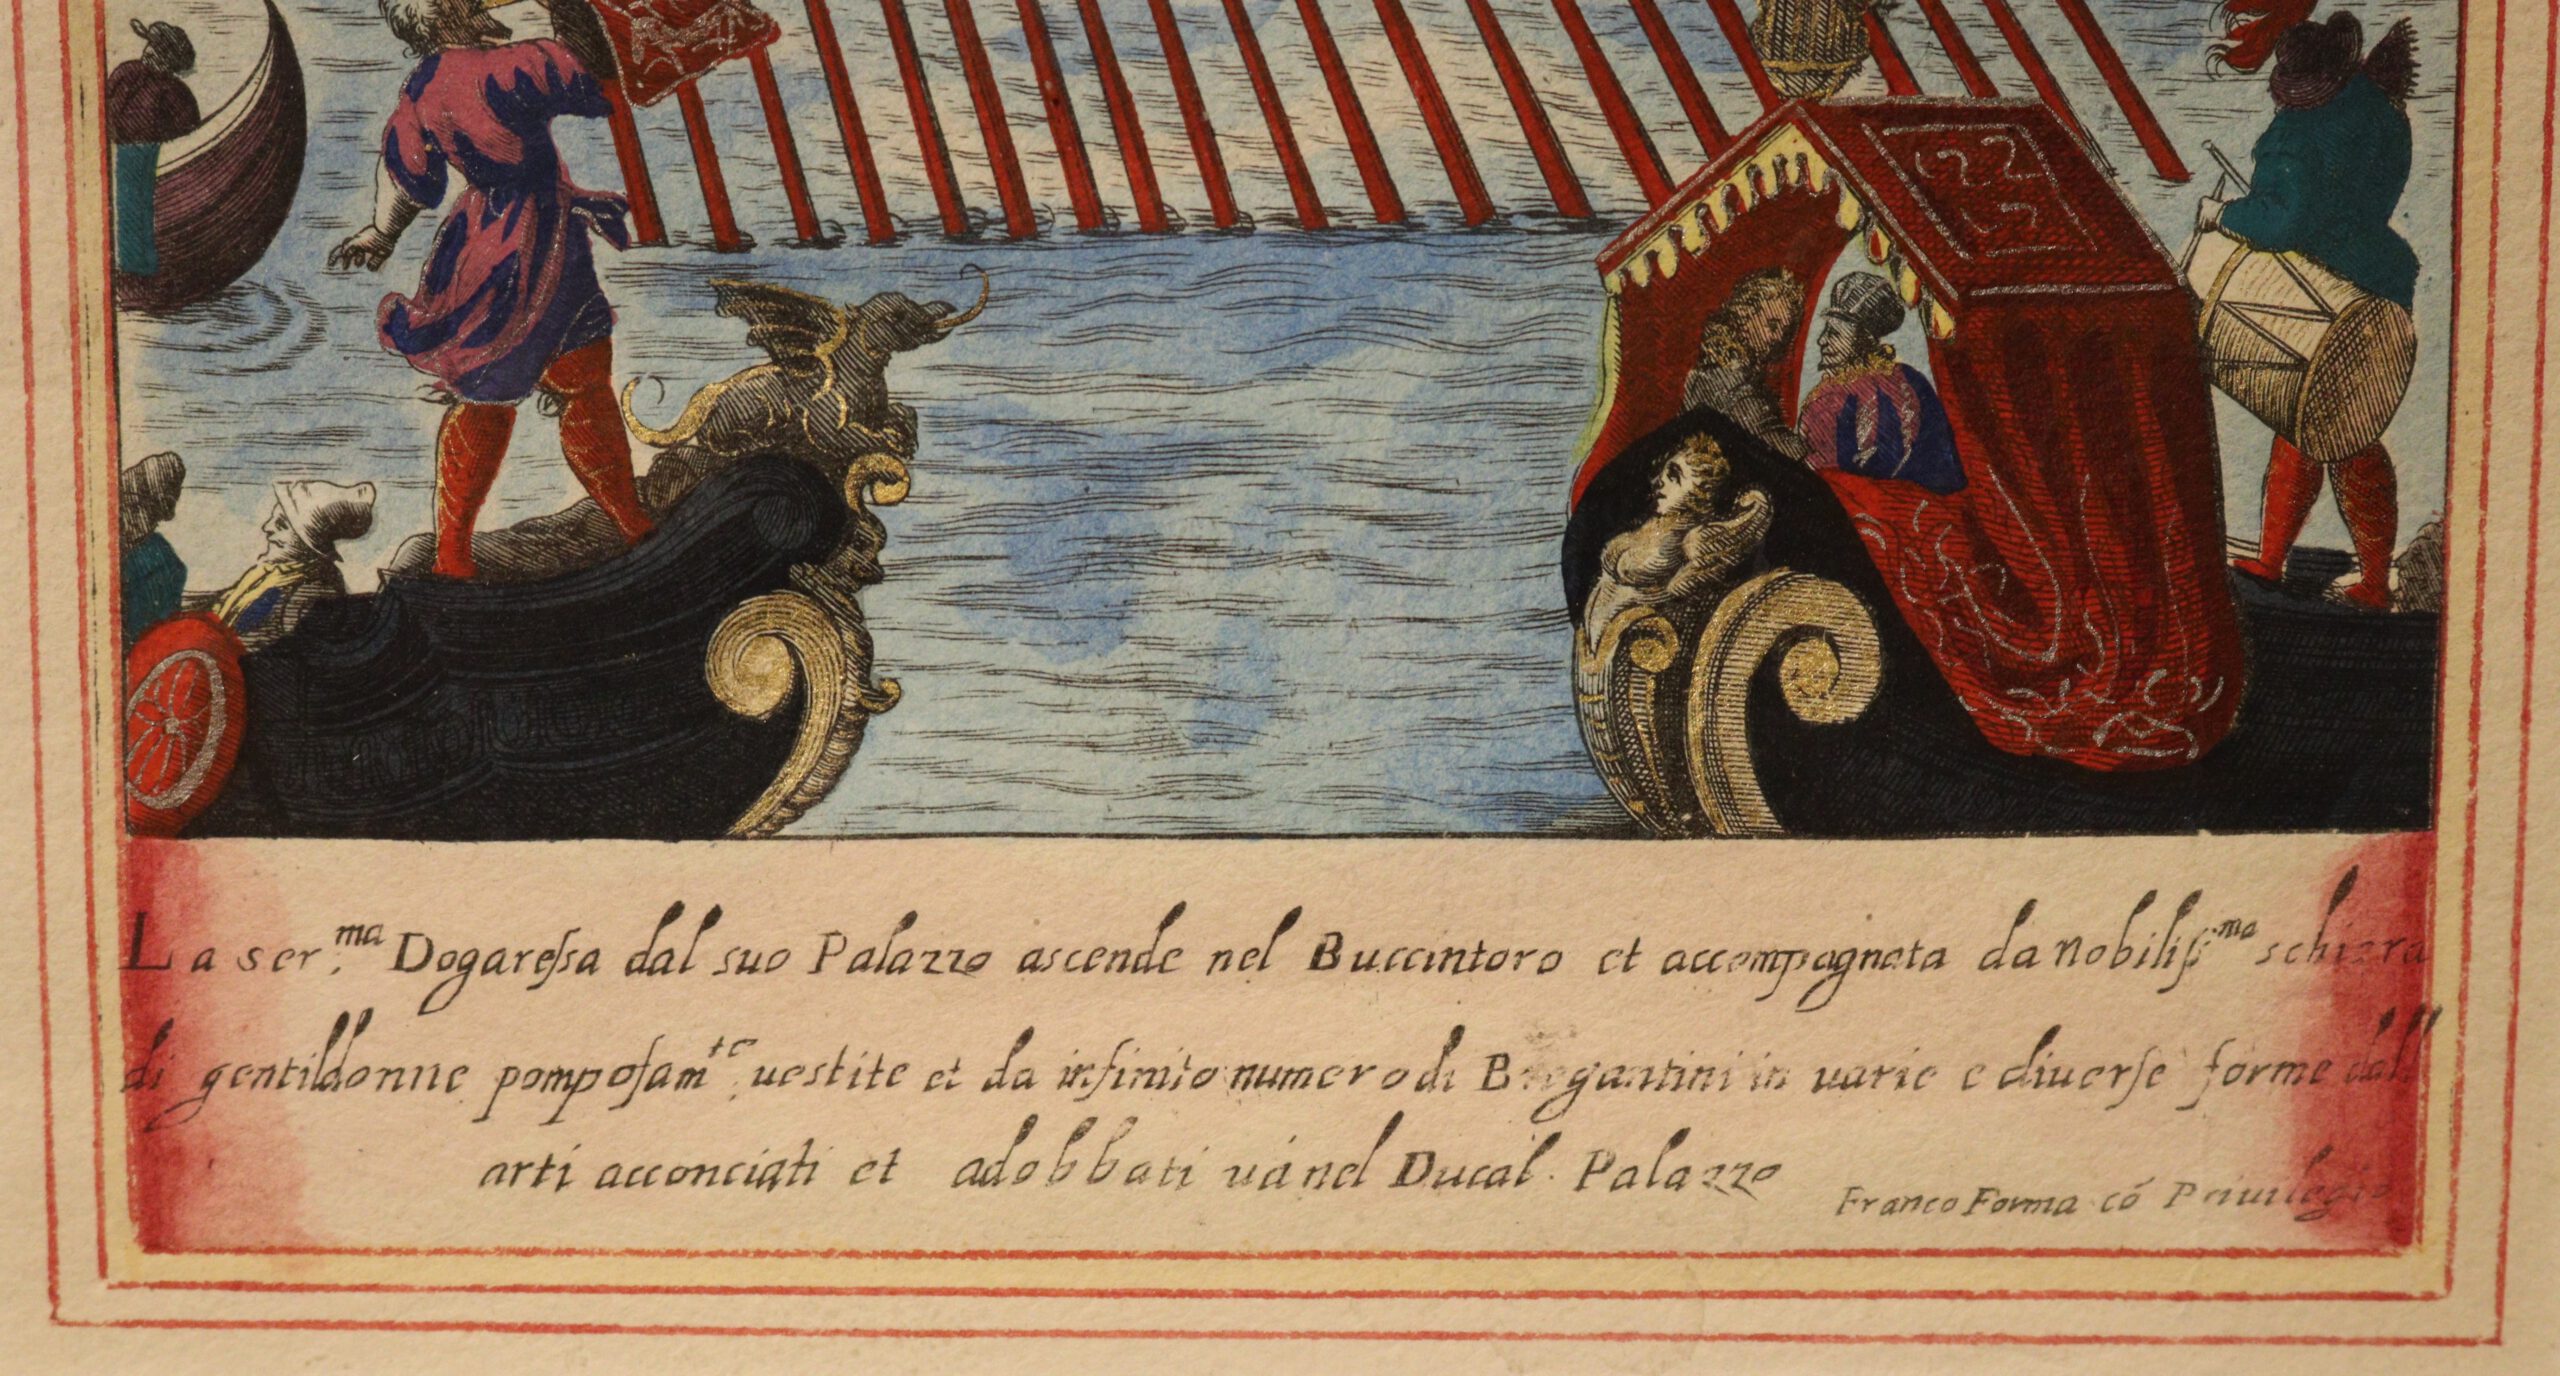 La ser.ma Dogareſsa dal suo Palazzo ascende nel Buccintoro et accompagnata da nobiliſs.ma schiera
di gentildonne pompoſam.te ueſtite et da infinito numero di Bregantini in uarie e diuerſe forme dall
arti acconciati et adobbati uá nel Ducal Palazzo
Franco Forma có Priuilegio